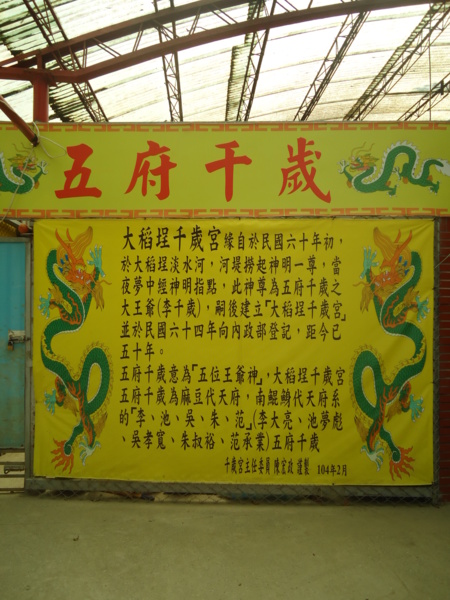 五府千歲
大稻埕千歲宮緣自於民國六十年初，
於大稻埕淡水河，河堤撈起神明一尊，當
夜夢中經神明指點，此神尊為五府千歲之
大王爺(李千歲)，嗣後建立「大稻埕千歲宮」
並於民國六十四年向內政部登記，距今已
五十年。
五府千歲意為「五位王爺神」，大稻埕千歲宮
五府千歲為麻豆代天府，南鯤鯓代天府系
的「李、池、吳、朱、范」(李大亮、池夢彪
、吳孝寬、朱叔裕、范承業)五府千歲
千歲宮主任委員 陳宏政 謹製 104年2月